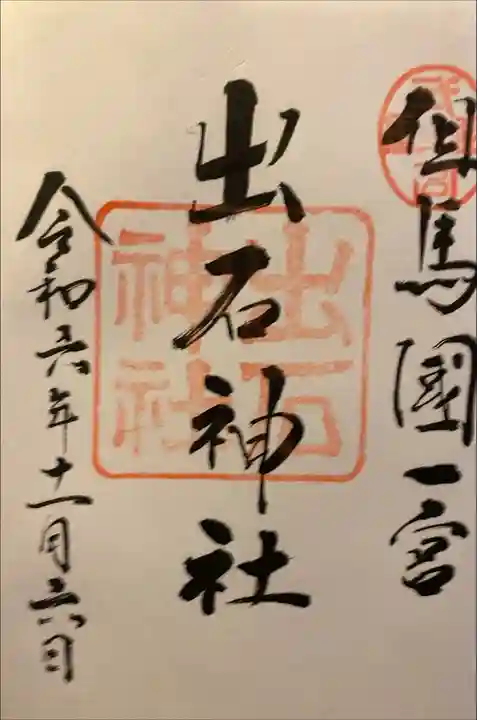 但馬國一宮
出石神社
出石神社
令和六年十一月六日